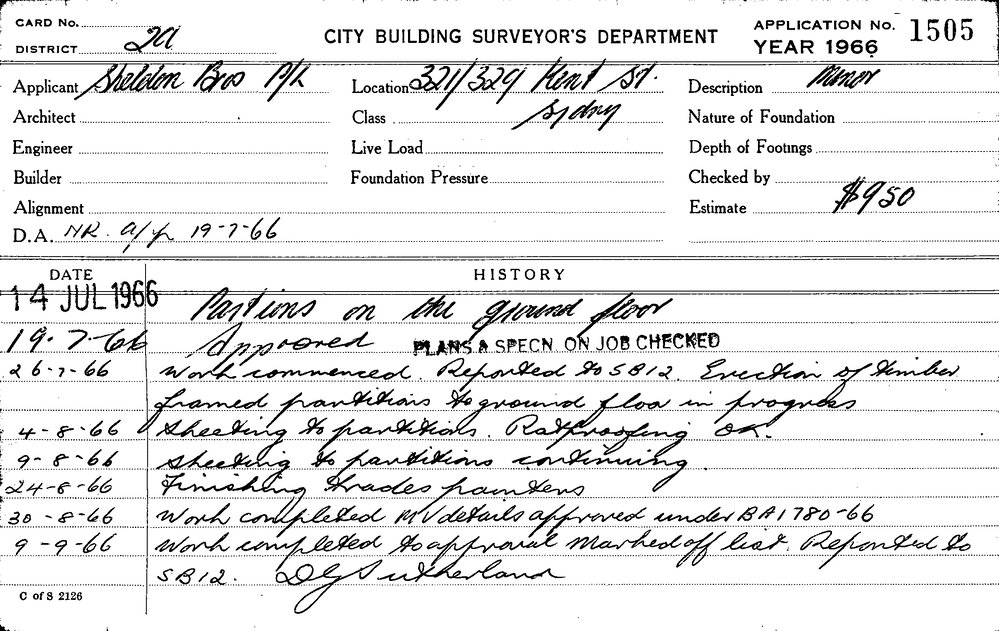 CARD No.
DISTRICT 2a
CITY BUILDING SURVEYOR'S DEPARTMENT
APPLICATION No. 1505
YEAR 1966
Applicant Sheldon Bros P/L
Location 321/329 Kent St.
Description Minor
Architect
Class Sydny
Nature of Foundation
Engineer
Live Load
Depth of Footings
Builder
Foundation Pressure
Checked by
Alignment
Estimate $950
D.A. NR. a/p 19-7-66
DATE
HISTORY
14 JUL 1966 Partions on the ground floor
19.7-66 Approved PLANS & SPECN. ON JOB CHECKED
26-7-66 Work commenced. Reported to SB12. Erection of timber
framed partitions to ground floor in progress
4-8-66 Sheeting to partitions. Ratproofing OK.
9-8-66 Sheeting to partitions continuing.
24-8-66 Finishing trades painters
30-8-66 Work completed MV details approved under BA1780-66
9-9-66 Work completed to approval Marked off list. Reported to
SB12. DG Sutherland
C of S 2126